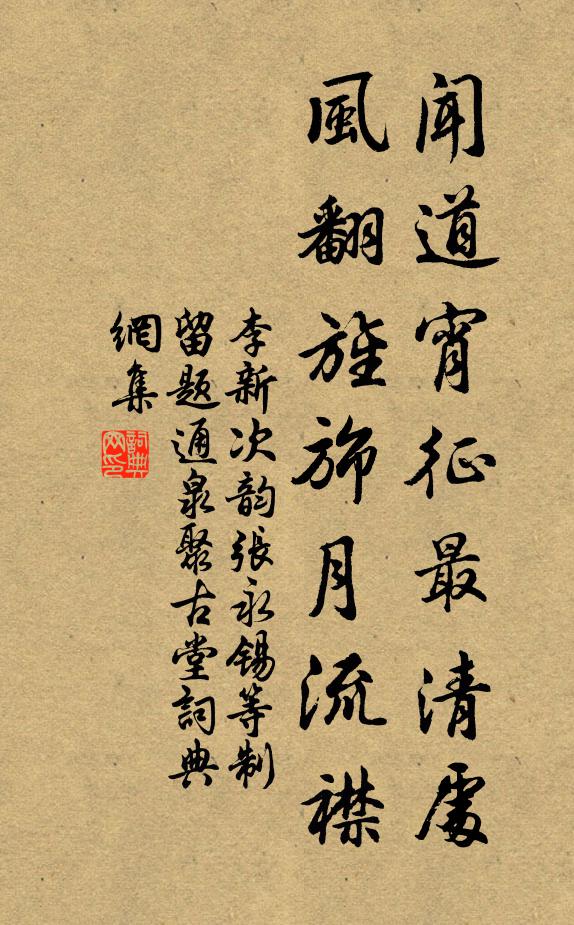 聞道宵征最清處
風翻旌斾月流襟
李新次韵張永錫等制
留題通泉聚古堂詞典
網集
詞典網印